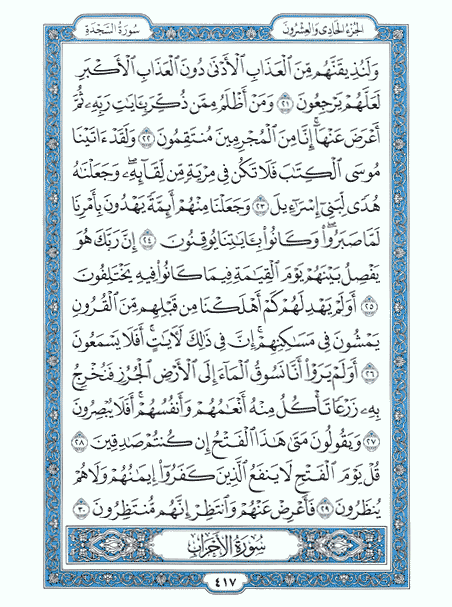 الجزء الحادى والعشرون
سورة السجدة
وَلَنُذِيقَنَّهُم مِّنَ ٱلْعَذَابِ ٱلْأَدْنَىٰ دُونَ ٱلْعَذَابِ ٱلْأَكْبَرِ
لَعَلَّهُمْ يَرْجِعُونَ ٢١ وَمَنْ أَظْلَمُ مِمَّن ذُكِّرَ بِـَٔايَٰتِ رَبِّهِۦ ثُمَّ
أَعْرَضَ عَنْهَآ ۚ إِنَّا مِنَ ٱلْمُجْرِمِينَ مُنتَقِمُونَ ٢٢ وَلَقَدْ ءَاتَيْنَا
مُوسَى ٱلْكِتَٰبَ فَلَا تَكُن فِى مِرْيَةٍ مِّن لِّقَآئِهِۦ ۖ وَجَعَلْنَٰهُ
هُدًى لِّبَنِىٓ إِسْرَٰٓءِيلَ ٢٣ وَجَعَلْنَا مِنْهُمْ أَئِمَّةً يَهْدُونَ بِأَمْرِنَا
لَمَّا صَبَرُوا۟ ۖ وَكَانُوا۟ بِـَٔايَٰتِنَا يُوقِنُونَ ٢٤ إِنَّ رَبَّكَ هُوَ
يَفْصِلُ بَيْنَهُمْ يَوْمَ ٱلْقِيَٰمَةِ فِيمَا كَانُوا۟ فِيهِ يَخْتَلِفُونَ
٢٥ أَوَلَمْ يَهْدِ لَهُمْ كَمْ أَهْلَكْنَا مِن قَبْلِهِم مِّنَ ٱلْقُرُونِ
يَمْشُونَ فِى مَسَٰكِنِهِمْ ۚ إِنَّ فِى ذَٰلِكَ لَءَايَٰتٍ ۖ أَفَلَا يَسْمَعُونَ
٢٦ أَوَلَمْ يَرَوْا۟ أَنَّا نَسُوقُ ٱلْمَآءَ إِلَى ٱلْأَرْضِ ٱلْجُرُزِ فَنُخْرِجُ
بِهِۦ زَرْعًا تَأْكُلُ مِنْهُ أَنْعَٰمُهُمْ وَأَنفُسُهُمْ ۖ أَفَلَا يُبْصِرُونَ
٢٧ وَيَقُولُونَ مَتَىٰ هَٰذَا ٱلْفَتْحُ إِن كُنتُمْ صَٰدِقِينَ ٢٨
قُلْ يَوْمَ ٱلْفَتْحِ لَا يَنفَعُ ٱلَّذِينَ كَفَرُوٓا۟ إِيمَٰنُهُمْ وَلَا هُمْ
يُنظَرُونَ ٢٩ فَأَعْرِضْ عَنْهُمْ وَٱنتَظِرْ إِنَّهُم مُّنتَظِرُونَ ٣٠
سورة الأحزاب
٤١٧